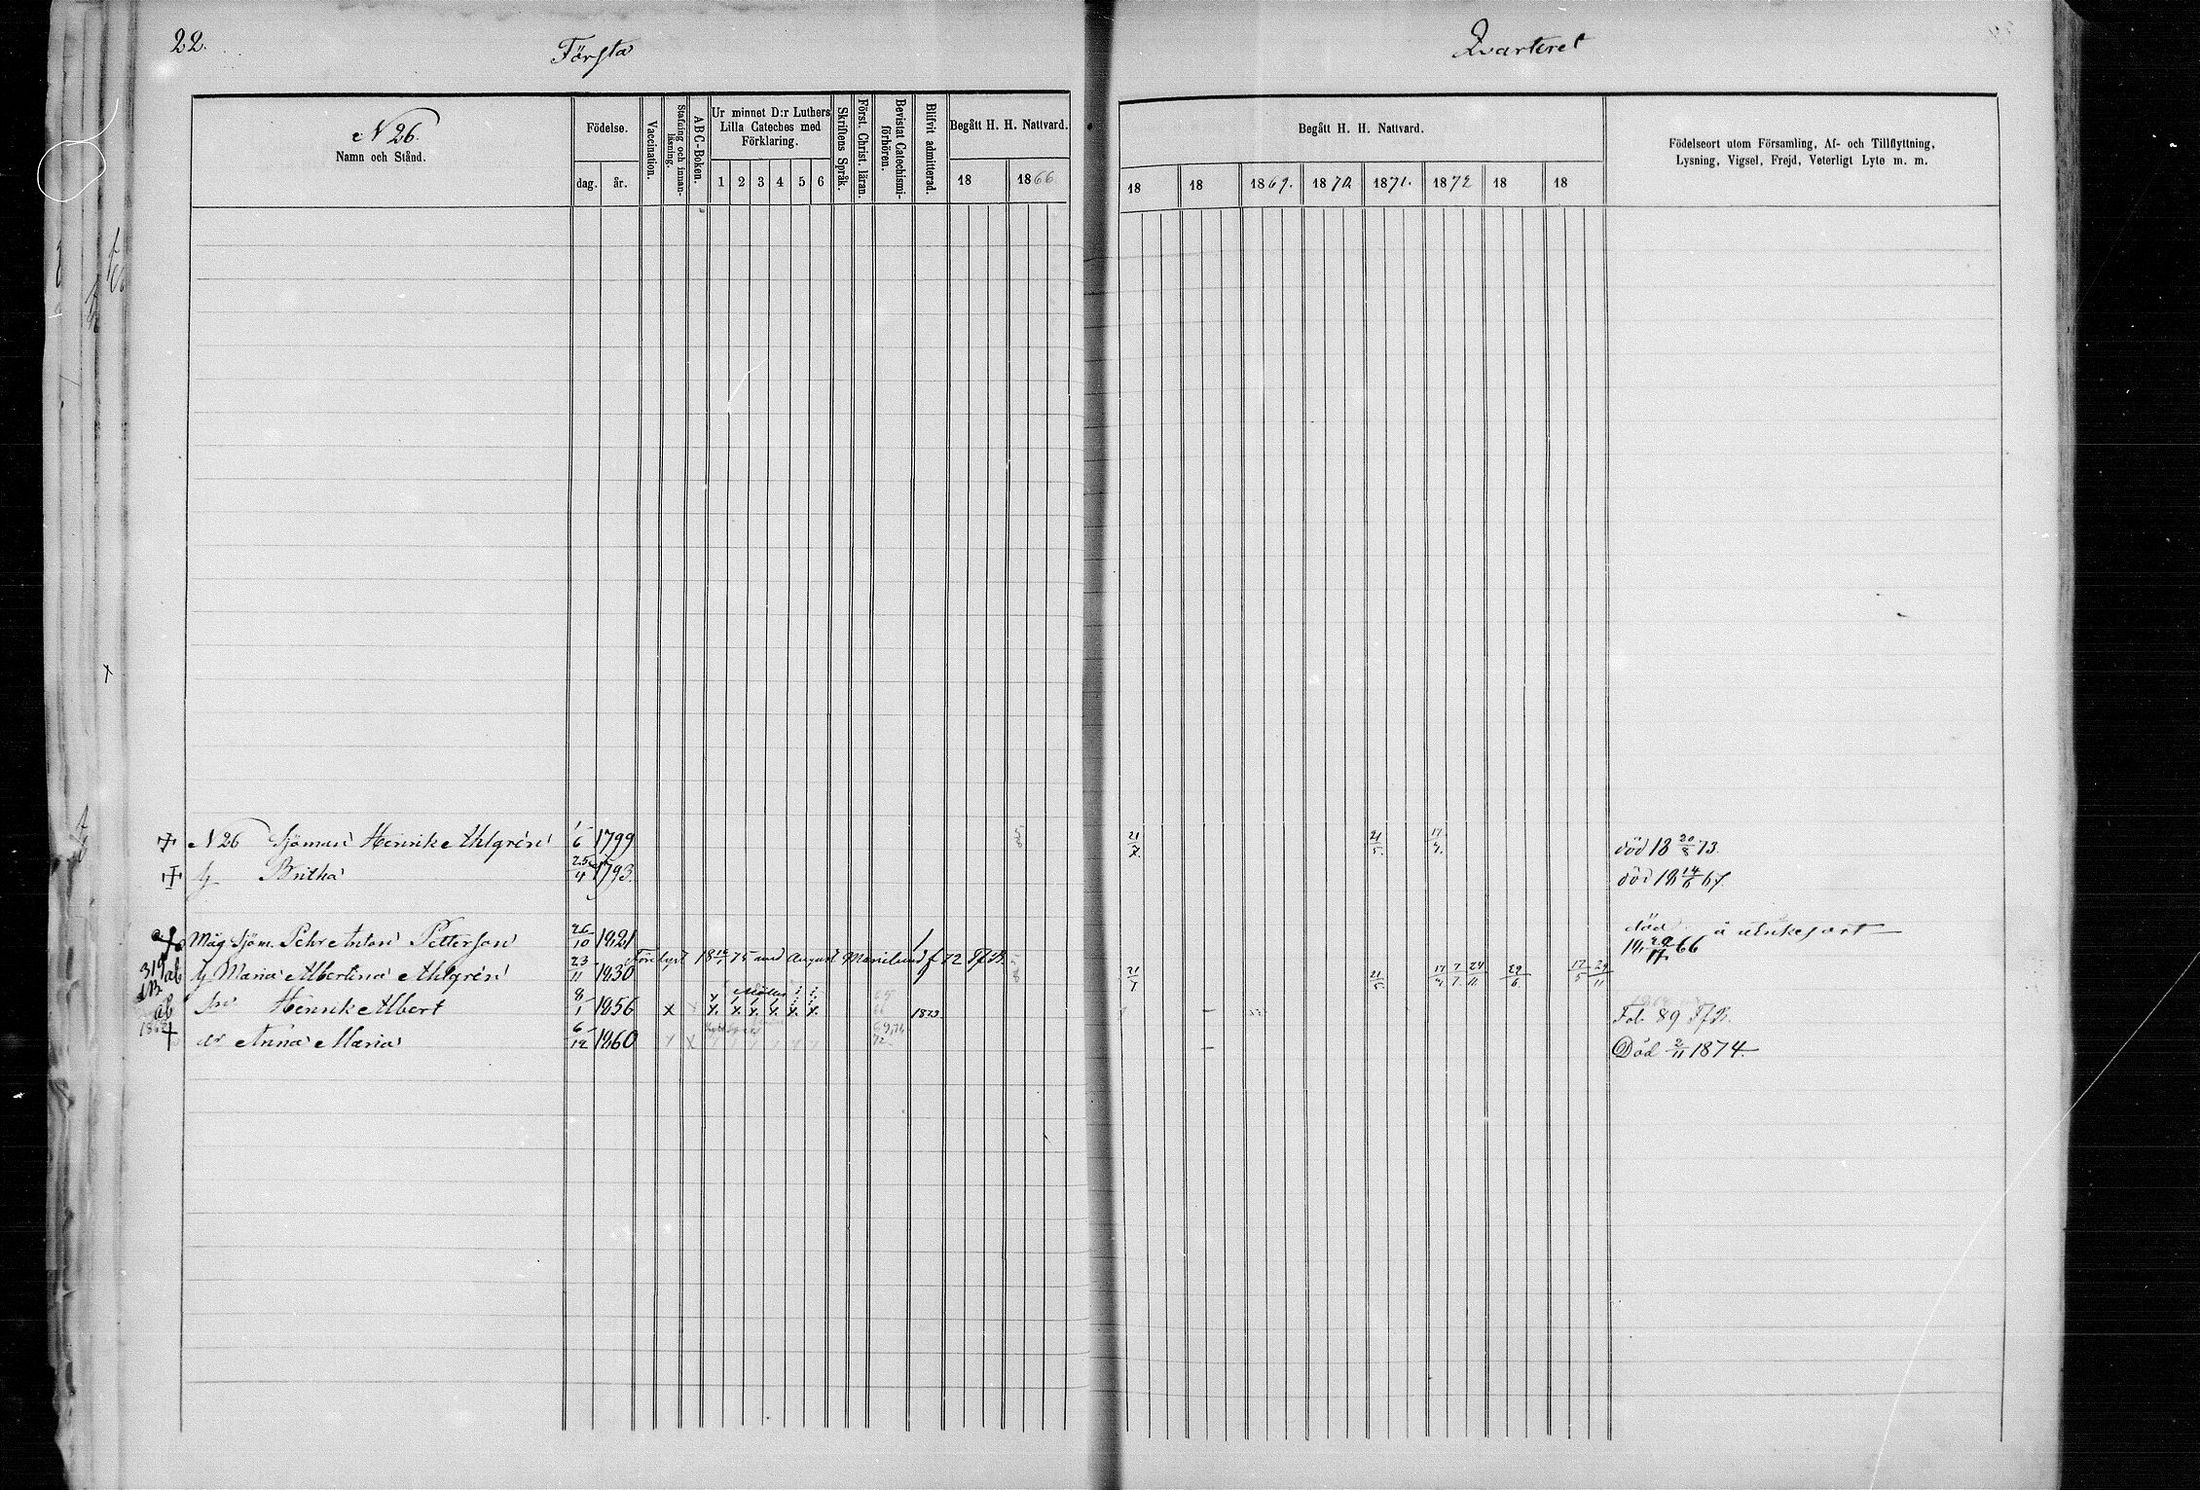 22.
Första
Qvarteret
N 26.
Namn och Stånd.
Födelse.
dag.
år.
Vaccination.
Stafning och innan-läsning.
ABC-Boken.
Ur minnet D:r Luthers
Lilla Cateches med
Förklaring.
1 2 3 4 5 6
Skriftens Språk.
Först. Christ. läran.
Bevistat Catechismi-förhören.
Blifvit admitterad.
Begått H. H. Nattvard.
18
1866
Begått H. H. Nattvard.
18 18 1869. 1870. 1871. 1872 18 18
Födelseort utom Församling, Af- och Tillflyttning,
Lysning, Vigsel, Frejd, Veterligt Lyte m. m.
N 26 Sjöman Henrik Ahlgrén 1/6 1799 5/8 21/7. 21/5. 17/4. död 18 20/8 73.
H Britha 25/4 1793. död 18 14/6 67.
Måg Sjöm. Pehr Anton Petterson 26/10 1821 död å utrikes ort
18 29/17 66
319 ab H Maria Albertina Ahlgrén 23/11 1830 5/8 21/7 21/5. 17/4. 7/7. 24/11. 29/6 17/5 29/11
Förelyst 18 75 med August Marielund f 12 Tf B.
ab Sn Henrik Albert 8/1 1856 x 1873 Fol. 89 Tf B.
dr Anna Maria 6/12 1860 x 69,71 72 Död 2/11 1874.